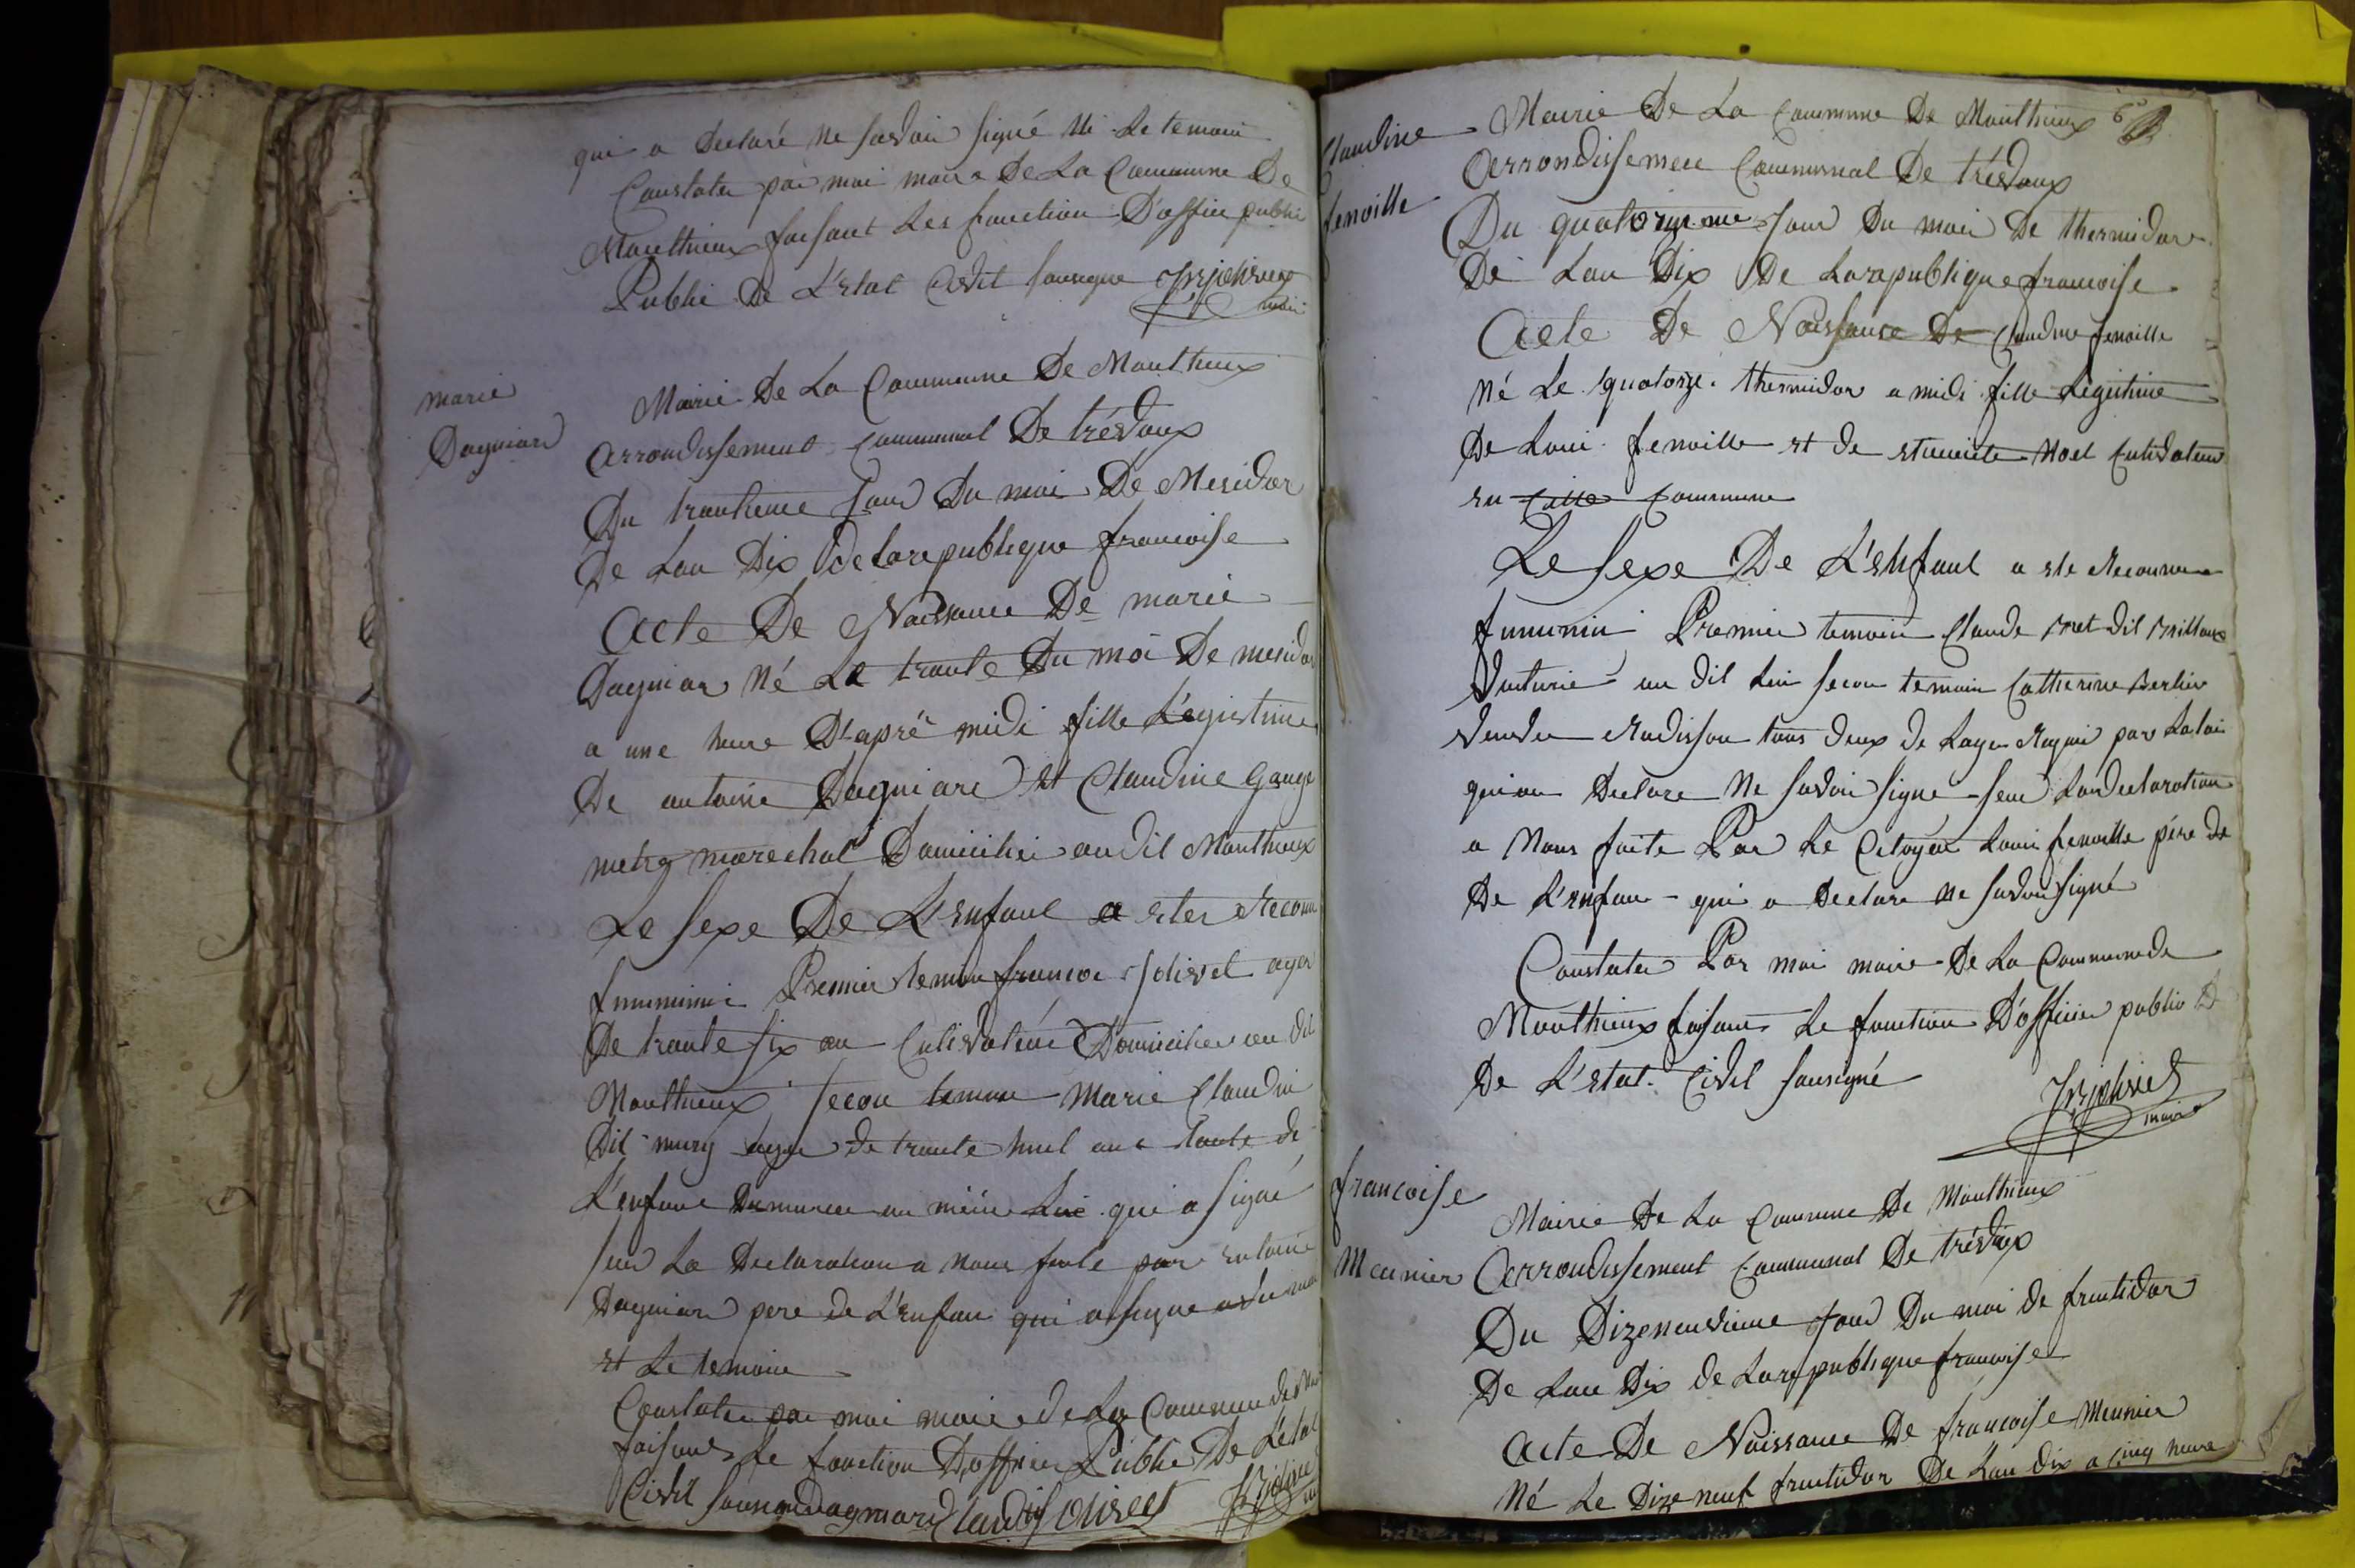 qui a declaré ne savoir signé ni le temoin
Constater par moi maire De La Commune De
Monthieux faisant Les fonction D'officie public
Public De L'Etat Civil sousigne
maire
marie
Dagniard
Mairie De La Commune De Monthieux
Arrondissement Communal De trévoux
Du trantieme Jour Du moi De Mesidor
De Lan Dix de la republique francoise
Acte De Naissance De marie
Dagniar Né Le trante Du moi De mesidor
a une heure D'apré midi fille Légistime
De antoine Dagniard et Claudine
marechal Domicilié au dit Monthieux
Le sexe De L'enfant a eter Reconu
femminin Premier temoin francoi Jolivet agé
De trante six an Cultivateur Domicilier au dit
Monthieux secon temoin Marie Claudin
Dit mury agée de trante huit ans tante de
L'enfant Demurer au même Lui qui a signé
sur La Declaration a nous faite par antoine
Dagniar pere de L'enfan qui a signe
et le temoin
Constater par moi maire de La Commune de
faisant Le fonction D'officier Public De L'état
Civil dagniard Claudin Jolivet
6
Claudine
fenoille
Mairie De La Commune De Monthieux
Arrondissemen Communal De trévoux
Du quatorzieme Jour Du moi De thermidor
De Lan Dix De La republique francoise
Acte De Naissance De Claudine fenoille
Né Le quatorze thermidor a midi fille Légitime
De Loui fenoille et de Noel Cultivateur
en Cette Commune
Le sexe De L'enfant a ete Reconnu
femminin Premier temoin Claude dit
au dit Lui secon temoin Catherine Berlier
tous deux de Lage Requi par La loi
qui on Declare Ne savoir signé sur La declaration
a Nous faite Par Le Citoyen Loui fenoille pére de
De L'enfan qui a Declare ne savoir signé
Constater Par moi maire De La Commune de
Monthieux faisant Le fonction D'officier public
De L'etat Civil sousigné
maire
francoise
Meunier
Mairie De La Commune De Monthieux
Arrondissement Communal De trévoux
Du Dizeneuvieme Jour Du moi de fructidor
De Lan Dix de La republique francoise
Acte De Naissance De francoise Meunier
Né Le Dize neuf fructidor De Lan dix a cinq heure